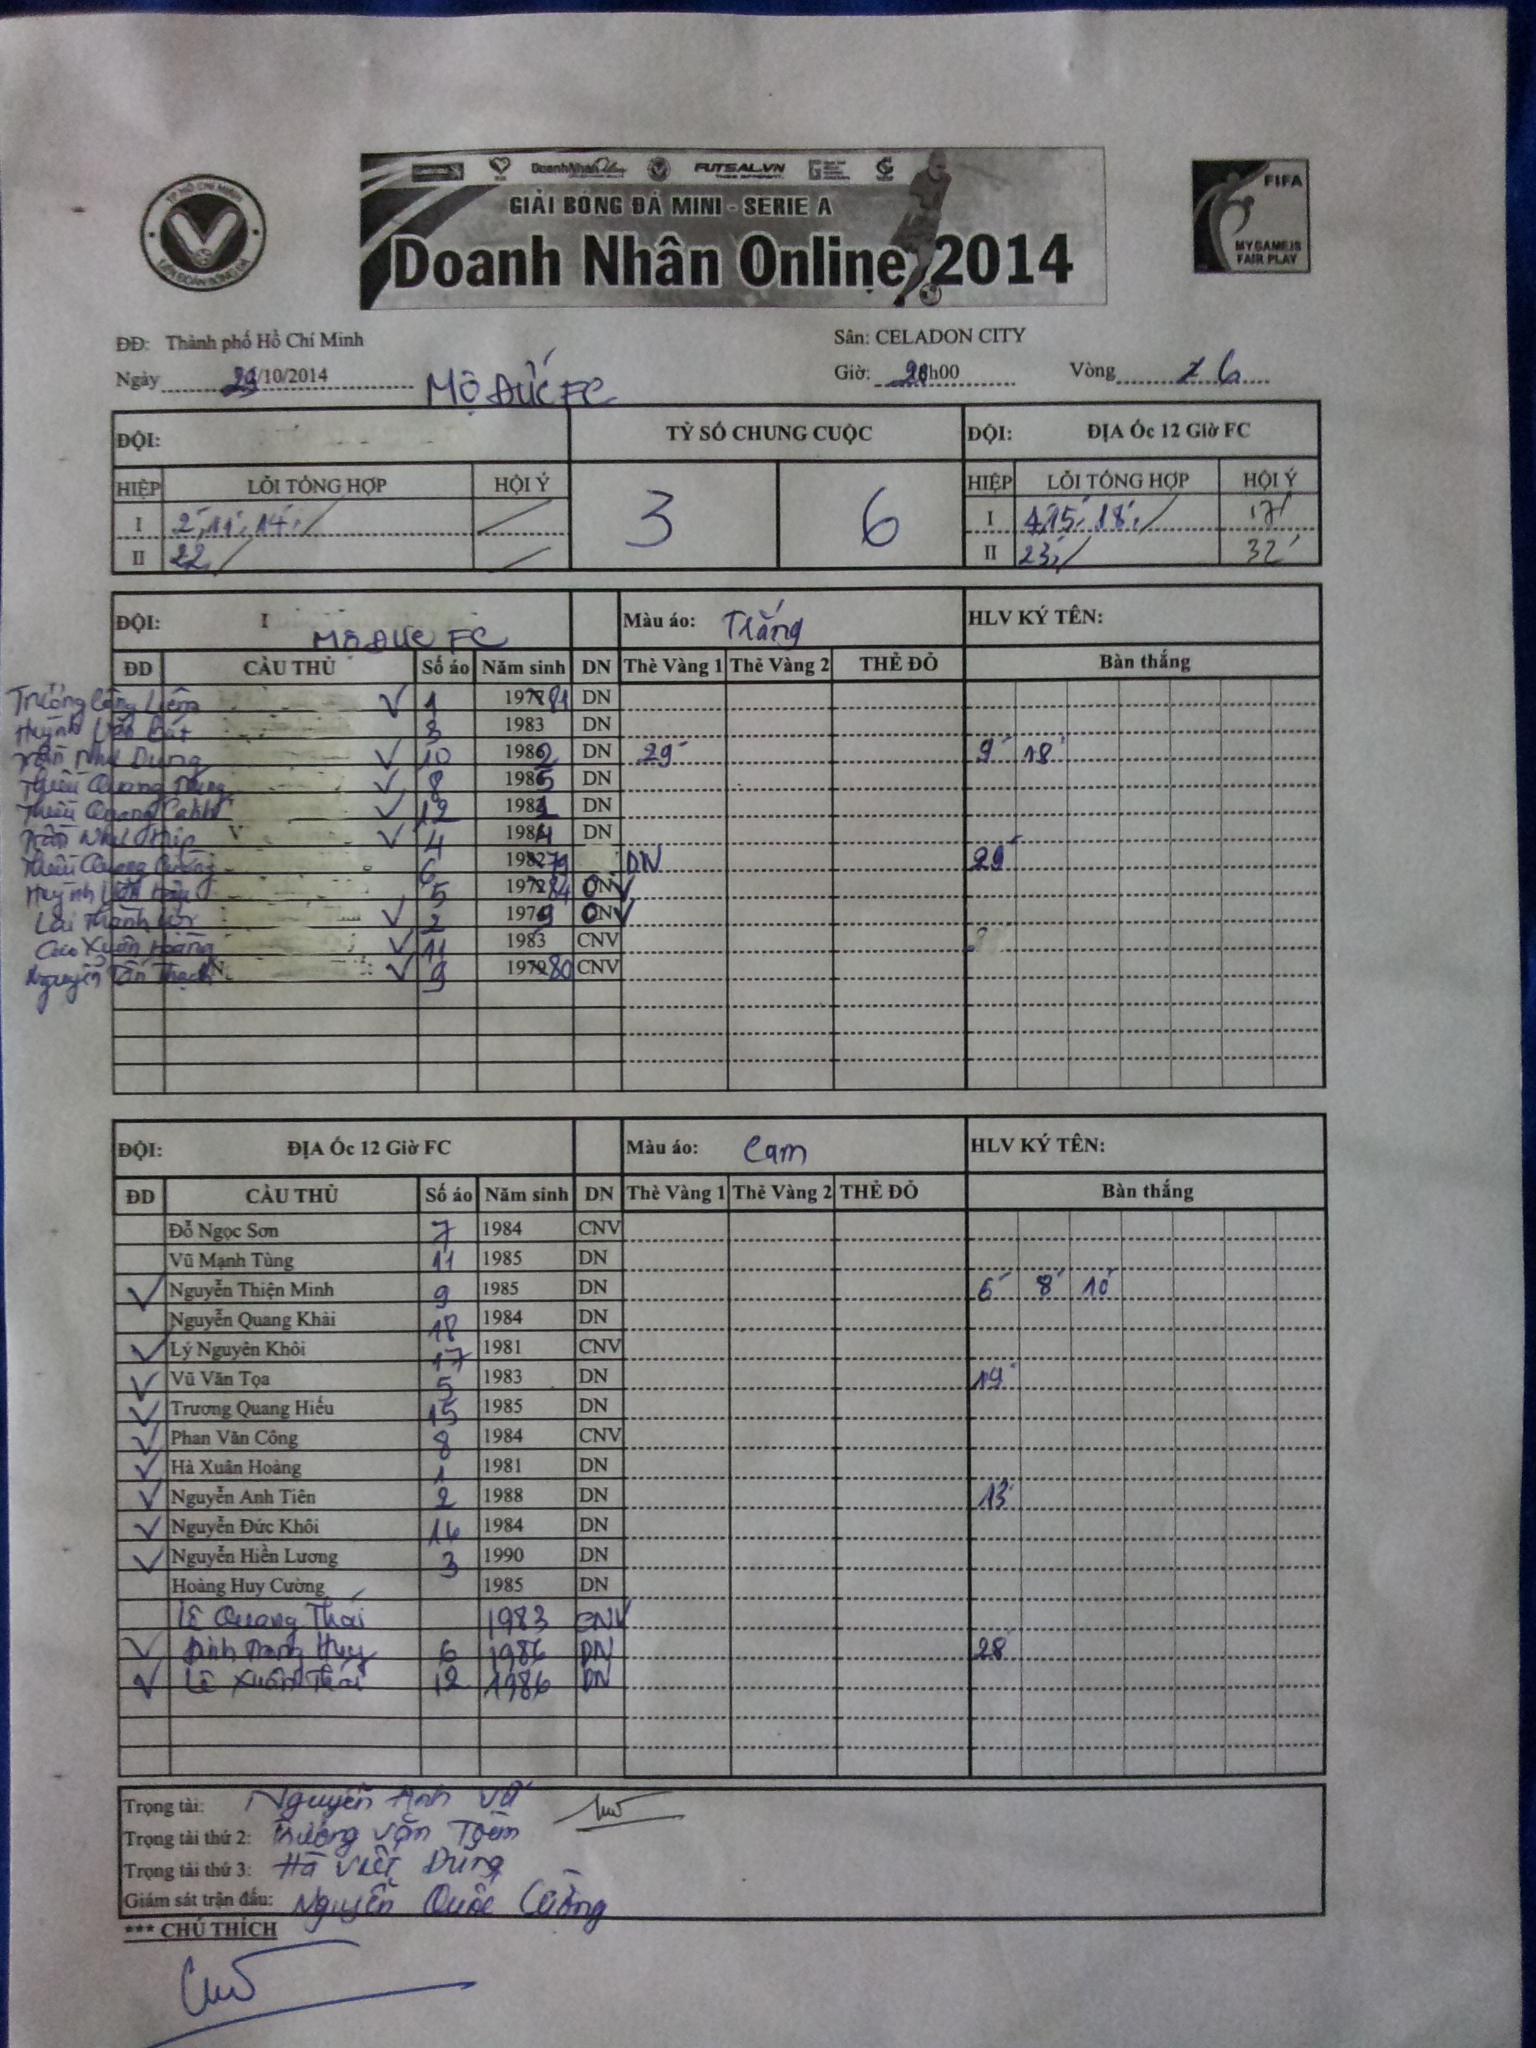 TP HỒ CHÍ MINH
LIÊN ĐOÀN BÓNG ĐÁ
DoanhNhân FUTSAL.VN
GIẢI BÓNG ĐÁ MINI - SERIE A
Doanh Nhân Online 2014
FIFA
MY GAME IS
FAIR PLAY
ĐĐ: Thành phố Hồ Chí Minh Sân: CELADON CITY
Ngày /10/2014 Giờ: h00 Vòng
MỘ ĐỨC FC
ĐỘI: TỶ SỐ CHUNG CUỘC ĐỘI: ĐỊA Ốc 12 Giờ FC
HIỆP LỖI TỔNG HỢP HỘI Ý 3 6 HIỆP LỖI TỔNG HỢP HỘI Ý
I 2', 11', 14', I 4' 15' 18', 17'
II 22' II 23', 32'
ĐỘI: MỘ ĐỨC FC Màu áo: Trắng HLV KÝ TÊN:
ĐD CẦU THỦ Số áo Năm sinh DN Thẻ Vàng 1 Thẻ Vàng 2 THẺ ĐỎ Bàn thắng
Trương Công Liêm 1 81 DN
Huỳnh Văn 3 1983 DN
Trần Như Dũng 10 1982 DN 29' 9' 18'
Thiều Quang 8 1985 DN
Thiều Quang 12 DN
Trần Như 4 1984 DN
Thiều Quang Cường 6 79 DN 29'
Huỳnh Văn 5 84
Lai Thanh 2 1979
Cao Xuân Hoàng 11 1983 CNV
Nguyễn Tấn Thạch 9 80 CNV
ĐỘI: ĐỊA Ốc 12 Giờ FC Màu áo: Cam HLV KÝ TÊN:
ĐD CẦU THỦ Số áo Năm sinh DN Thẻ Vàng 1 Thẻ Vàng 2 THẺ ĐỎ Bàn thắng
Đỗ Ngọc Sơn 7 1984 CNV
Vũ Mạnh Tùng 11 1985 DN
Nguyễn Thiện Minh 9 1985 DN 6' 8' 10'
Nguyễn Quang Khải 18 1984 DN
Lý Nguyên Khôi 17 1981 CNV
Vũ Văn Tọa 5 1983 DN 19'
Trương Quang Hiếu 15 1985 DN
Phan Văn Công 8 1984 CNV
Hà Xuân Hoàng 1 1981 DN
Nguyễn Anh Tiên 2 1988 DN 13'
Nguyễn Đức Khôi 16 1984 DN
Nguyễn Hiền Lương 3 1990 DN
Hoàng Huy Cường 1985 DN
Lê Quang Thái 1983 CNV
Đinh Huy 6 1986 DN 28'
Lê Xuân Thái 12 1986 DN
Trọng tài: Nguyễn Anh Vũ
Trọng tài thứ 2: Trương Văn
Trọng tài thứ 3: Hà Viết Dũng
Giám sát trận đấu: Nguyễn Quốc Cường
*** CHÚ THÍCH